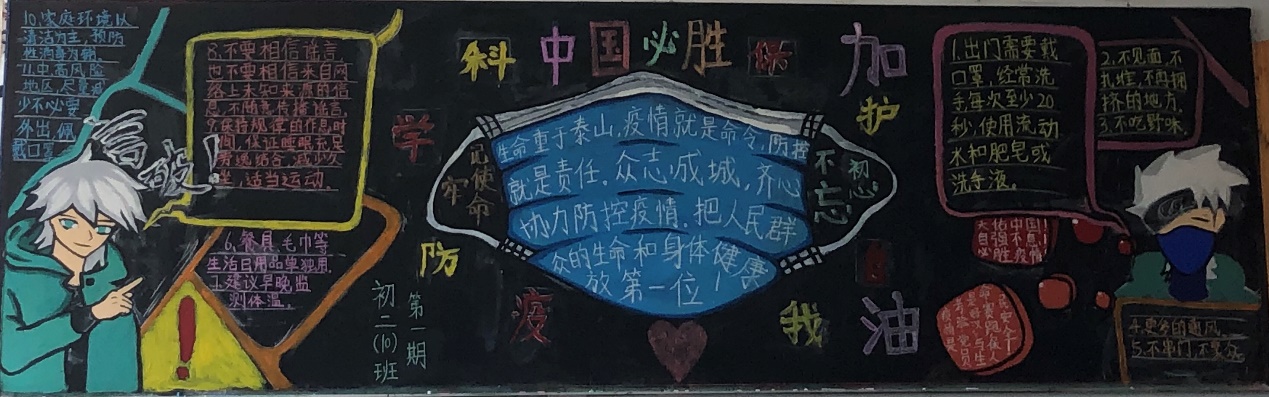 10.家庭环境以
清洁为主,预防
性消毒为辅。
11.中高风险
地区,尽量减
少不必要
外出,佩
戴口罩
言破!
8.不要相信谣言
也不要相信来自网
络上未知来源的信
息,不随意传播谣言,
9.保持规律的作息时
间,保证睡眠充足
劳逸结合,减少久
坐,适当运动。
6.餐具,毛巾等
生活日用品单独用.
7.建议早晚监
测体温。
初二(10)班
第一期
科
学
防
疫
中国必胜
记使
牢命
生命重于泰山,疫情就是命令,防控
就是责任,众志成城,齐心
协力防控疫情,把人民群
众的生命和身体健康
放第一位!
不忘
初心
加
油
护
我
1.出门需要戴
口罩,经常洗
手每次至少20
秒,使用流动
水和肥皂或
洗手液。
2.不见面,不
扎堆,不再拥
挤的地方,
3.不吃野味.
5.不串门,不聚会.